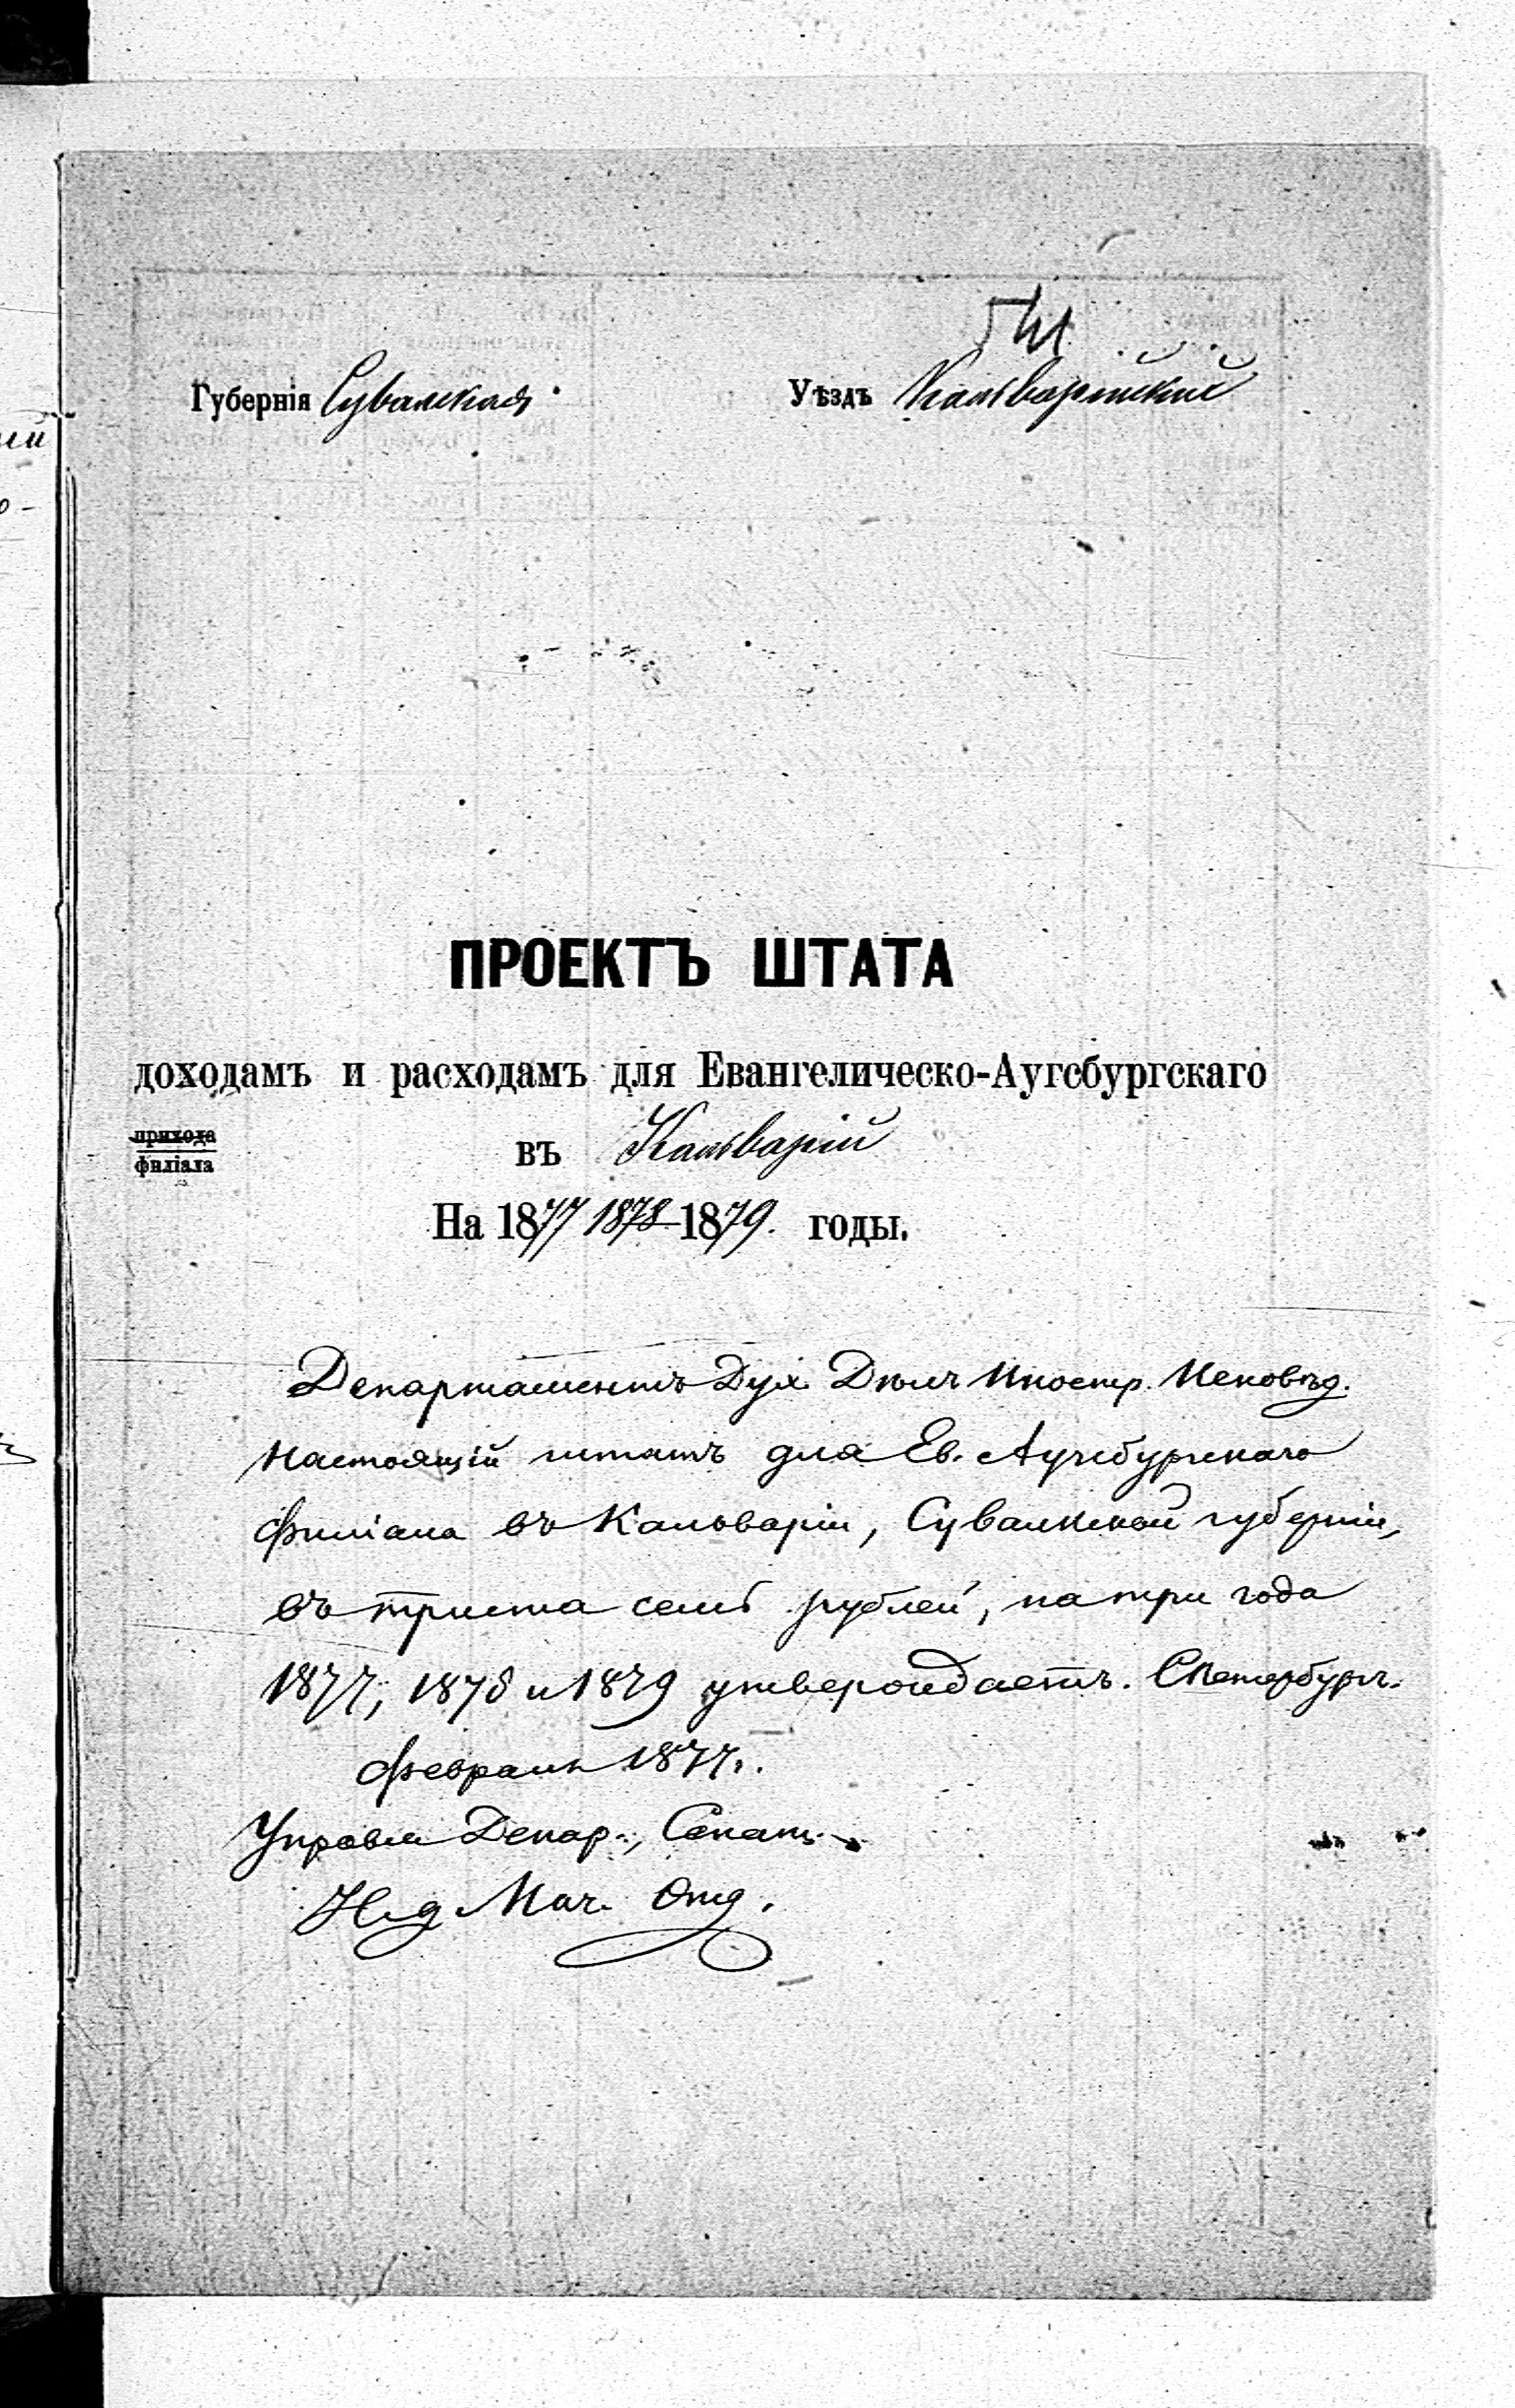 541
Губернія Сувалкская. Уѣздъ Кальварійскій
ПРОЕКТЪ ШТАТА
доходамъ и расходамъ для Евангелическо-Аугсбургскаго
прихода
филіала
въ Кальваріи
На 1877 1878 1879. годы.
Департаментъ Дух. Дѣлъ Иностр. Исповѣд.
настоящій штатъ для Ев. Аугсбургскаго
филіала въ Кальваріи, Сувалкской губерніи,
въ триста семь рублей, на три года
1877, 1878 и 1879 утверждаетъ. СПетербургъ.
февраля 1877.
Управл Депар., Сенат.
Нач. Отд.